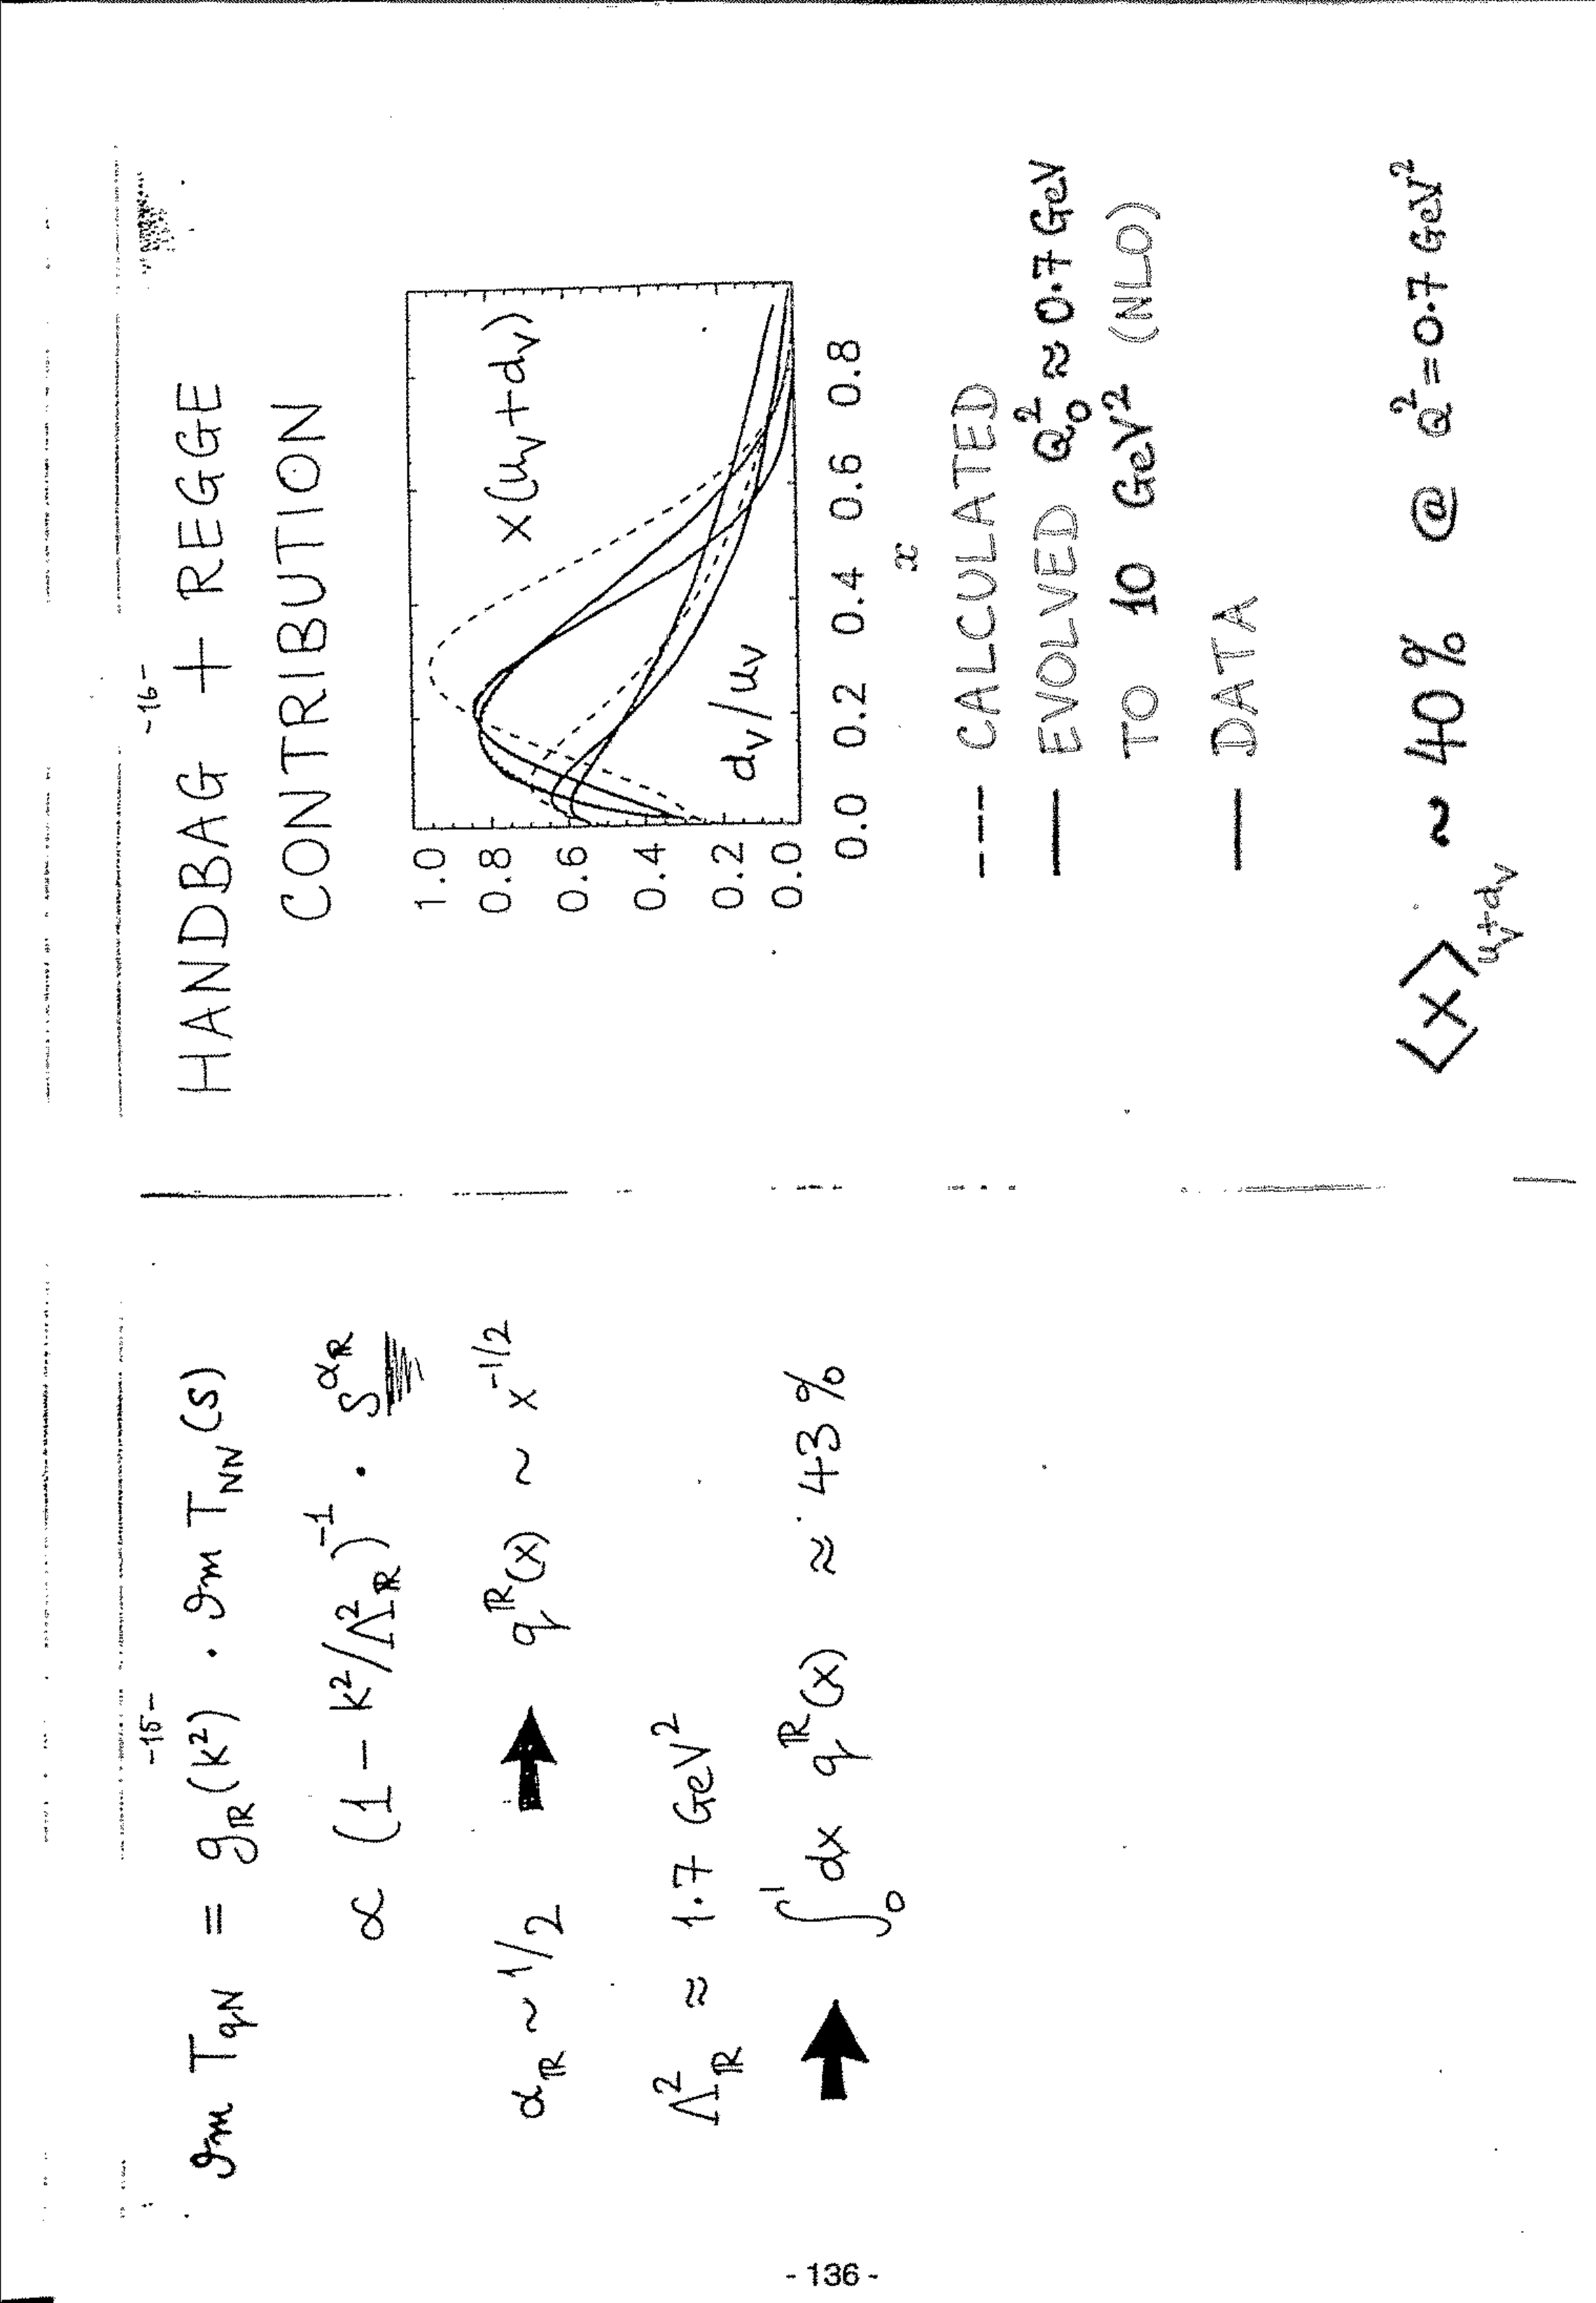 -15-
Im T_qN = g_ℝ(k²) · Im T_NN(s)
∝ (1 - k²/Λ²_ℝ)⁻¹ · s^α_ℝ
α_ℝ ~ 1/2 ➡ q^ℝ(x) ~ x^-1/2
Λ²_ℝ ≈ 1.7 GeV²
➡ ∫₀¹ dx q^ℝ(x) ≈ 43%
-16-
HANDBAG + REGGE
CONTRIBUTION
1.0
0.8
0.6
0.4
0.2
0.0
x(u_v+d_v)
d_v/u_v
0.0 0.2 0.4 0.6 0.8
x
--- CALCULATED
— EVOLVED Q₀² ≈ 0.7 GeV
TO 10 GeV² (NLO)
— DATA
⟨x⟩_u_v+d_v ~ 40% @ Q²=0.7 GeV²
- 136 -